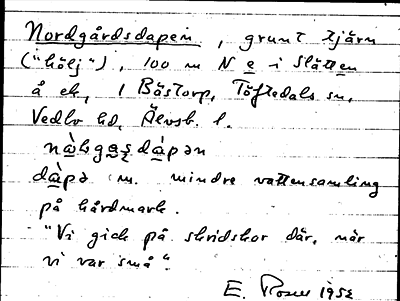 Nordgårdsdapen, grunt tjärn
("hölj"), 100 m N e i Slätten
å ek, 1 Bästorp, Töftedals sn,
Vedbo hd, Älvsb. l.
dàpə m. mindre vattensamling
på hårdmark.
"Vi gick på skridskor där, när
vi var små".
E. 1952